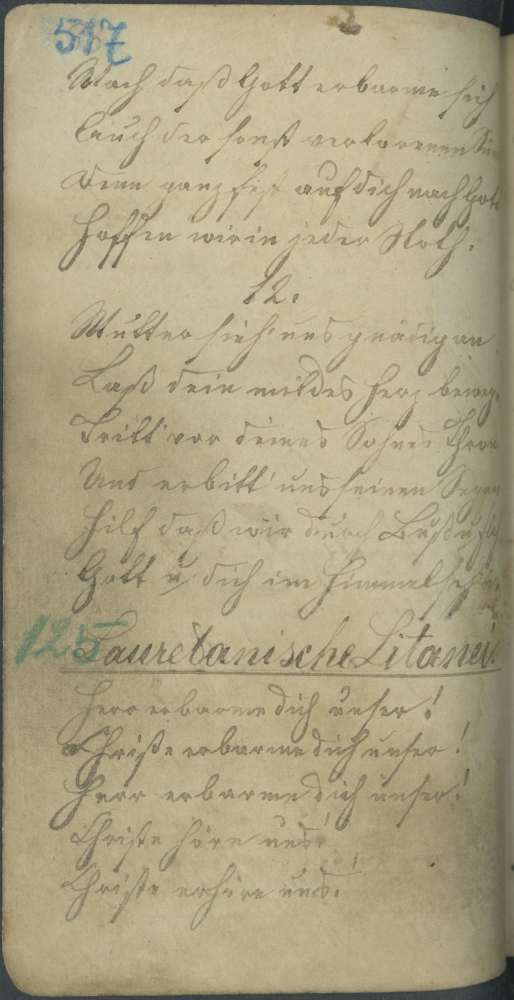 517
Mach daß Gott erbarme sich
Auch der sonst verlorenen
Denn ganz fest auf dich nach Gott
Hoffen wir in jeder Noth.
12.
Mutter sieh' uns gnädig an
Laß dein mildes Herz
Tritt vor deines Sohnes Thron
Und erbitt' uns seinen Segen
Hilf daß wir durch
Gott u. dich im Himmel
125 Lauretanische Litanei.
Herr erbarme dich unser!
Christe erbarme dich unser!
Herr erbarme dich unser!
Christe höre uns!
Christe erhöre uns!